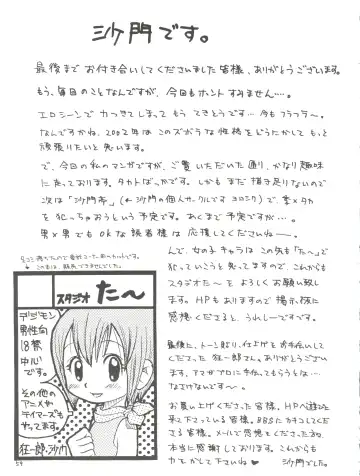 沙門です。
最後までお付き合いしてくださいました皆様、ありがとうございます。
もう、毎回のことなんですが、今回もホントすみません‥‥。
エロシーンで力つきてしまって もう てきとうです… 今もフラフラ〜。
なんですかね、2002年は このズボラな性格をどうにかして もっと
頑張りたいと思います。
で、今回の私のマンガですが、ご覧いただいた通り、かなり趣味
に走っております。タカトばっかです。しかも まだ描き足りないので
次は「沙門亭」(←沙門の個人サークルです ヨロシク)で
を犯っちゃおうという予定です。あくまで予定ですが…。
男×男でもOKな読者様は応援してくださいね――。
んで、女の子キャラはこの先も「た〜」で
犯っていこうと思ってますので、これからも
スタジオた〜をよろしくお願い致し
ます。HPもありますので掲示板に
感想くださると、うれしーですです。
最後に、トーン貼り、
くださった 狂一郎さん。ありがとうござい
ます。
なさけないです〜。
お買い上げくださった皆様、HPへ遊びに
来て下さっている皆様、BBSにカキコしてくだ
さる皆様。メールで感想をくださった方、
本当に感謝しております。これからも
がんばりますので 見
て下さい。 沙門でした。
スタジオ た〜
デジモン
男性向
18禁
中心
です。
その他の
アニメや
テイマーズも
やってます。
狂一郎、沙門
59